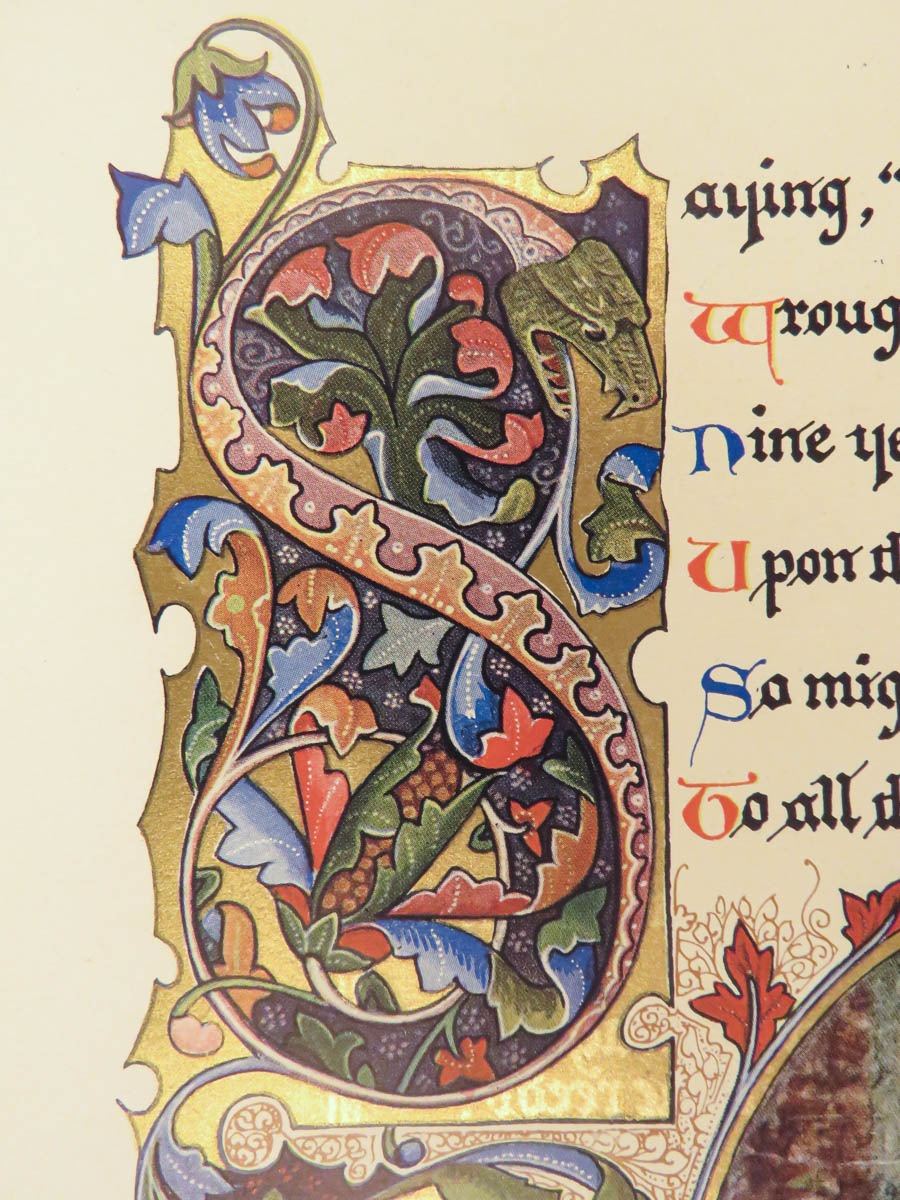 Saying, “
Wroug
Nine ye
Upon th
So mig
To all d